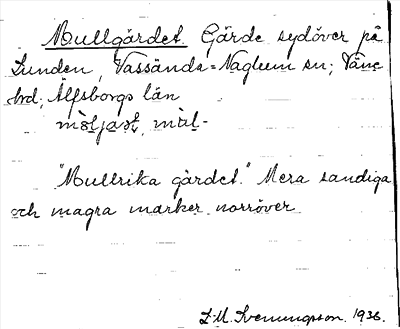 Mullgärdet. Gärde sydöver på
Lunden, Vassända=Naglum sn; Väne
hd; Älfsborgs län

"Mullrika gärdet." Mera sandiga
och magra marker norröver
S. M. Svenungsson. 1936.